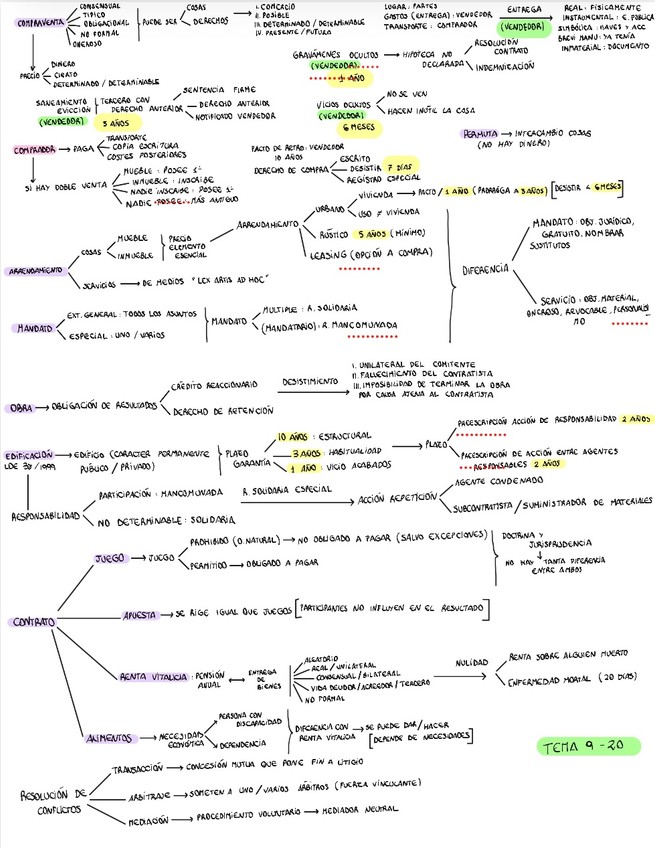 COMPRAVENTA
CONSENSUAL
TIPICO
OBLIGACIONAL
NO FORMAL
ONEROSO
PUEDE SER
COSAS
DERECHOS
I. COMERCIO
II. POSIBLE
III. DETERMINADO / DETERMINABLE
IV. PRESENTE / FUTURO
LUGAR: PARTES
GASTOS (ENTREGA): VENDEDOR
TRANSPORTE: COMPRADOR
ENTREGA
(VENDEDOR)
REAL: FÍSICAMENTE
INSTRUMENTAL: E. PÚBLICA
SIMBÓLICA: LLAVES Y ACC
BREVI MANU: YA TENÍA
INMATERIAL: DOCUMENTO
PRECIO
DINERO
CIERTO
DETERMINADO / DETERMINABLE
GRAVÁMENES OCULTOS
(VENDEDOR)
1 AÑO
HIPOTECA NO
DECLARADA
RESOLUCIÓN
CONTRATO
INDEMNIZACIÓN
SANEAMIENTO
EVICCIÓN
(VENDEDOR)
TERCERO CON
DERECHO ANTERIOR
5 AÑOS
SENTENCIA FIRME
DERECHO ANTERIOR
NOTIFICADO VENDEDOR
VICIOS OCULTOS
(VENDEDOR)
6 MESES
NO SE VEN
HACEN INÚTIL LA COSA
PERMUTA → INTERCAMBIO COSAS
(NO HAY DINERO)
COMPRADOR → PAGA
TRANSPORTE
COPIA ESCRITURA
COSTES POSTERIORES
PACTO DE RETRO: VENDEDOR
10 AÑOS
DERECHO DE COMPRA
ESCRITO
DESISTIR 7 DÍAS
REGISTRO ESPECIAL
SI HAY DOBLE VENTA
MUEBLE: POSEE 1º
INMUEBLE: INSCRIBE
NADIE INSCRIBE: POSEE 1º
NADIE POSEE: MÁS ANTIGUO
ARRENDAMIENTO
COSAS
MUEBLE
INMUEBLE
PRECIO
ELEMENTO
ESENCIAL
ARRENDAMIENTO
URBANO
VIVIENDA → PACTO / 1 AÑO (PRORROGA A 3 AÑOS) [DESISTIR < 6 MESES]
USO ≠ VIVIENDA
RÚSTICO 5 AÑOS (MÍNIMO)
LEASING (OPCIÓN A COMPRA)
SERVICIOS → DE MEDIOS "LEX ARTIS AD HOC"
DIFERENCIA
MANDATO: OBJ. JURÍDICO,
GRATUITO, NOMBRAR
SUSTITUTOS
SERVICIO: OBJ. MATERIAL,
ONEROSO, REVOCABLE, PERSONALÍSI
MO
MANDATO
EXT. GENERAL: TODOS LOS ASUNTOS
ESPECIAL: UNO / VARIOS
MANDATO
MULTIPLE: R. SOLIDARIA
(MANDATARIO): R. MANCOMUNADA
OBRA → OBLIGACIÓN DE RESULTADOS
CRÉDITO REACCIONARIO
DERECHO DE RETENCIÓN
DESISTIMIENTO
I. UNILATERAL DEL COMITENTE
II. FALLECIMIENTO DEL CONTRATISTA
III. IMPOSIBILIDAD DE TERMINAR LA OBRA
POR CAUSA AJENA AL CONTRATISTA
EDIFICACIÓN → EDIFICIO (CARÁCTER PERMANENTE
LOE 38/1999
PÚBLICO / PRIVADO)
PLAZO
GARANTÍA
10 AÑOS: ESTRUCTURAL
3 AÑOS: HABITUALIDAD
1 AÑO: VICIO ACABADOS
PLAZO
PRESCRIPCIÓN ACCIÓN DE RESPONSABILIDAD 2 AÑOS
PRESCRIPCIÓN DE ACCIÓN ENTRE AGENTES
RESPONSABLES 2 AÑOS
RESPONSABILIDAD
PARTICIPACIÓN: MANCOMUNADA
NO DETERMINABLE: SOLIDARIA
R. SOLIDARIA ESPECIAL
ACCIÓN REPETICIÓN
AGENTE CONDENADO
SUBCONTRATISTA / SUMINISTRADOR DE MATERIALES
CONTRATO
JUEGO → JUEGO
PROHIBIDO (O. NATURAL) → NO OBLIGADO A PAGAR (SALVO EXCEPCIONES)
PERMITIDO → OBLIGADO A PAGAR
DOCTRINA Y
JURISPRUDENCIA
NO HAY TANTA DIFERENCIA
ENTRE AMBOS
APUESTA → SE RIGE IGUAL QUE JUEGOS [PARTICIPANTES NO INFLUYEN EN EL RESULTADO]
RENTA VITALICIA: PENSIÓN
ANUAL
ENTREGA
DE
BIENES
ALEATORIO
REAL / UNILATERAL
CONSENSUAL / BILATERAL
VIDA DEUDOR / ACREEDOR / TERCERO
NO FORMAL
NULIDAD
RENTA SOBRE ALGUIEN MUERTO
ENFERMEDAD MORTAL (20 DÍAS)
ALIMENTOS → NECESIDAD
ECONÓMICA
PERSONA CON
DISCAPACIDAD
DEPENDENCIA
DIFERENCIA CON → SE PUEDE DAR / HACER
RENTA VITALICIA [DEPENDE DE NECESIDADES]
TEMA 9 - 20
RESOLUCIÓN DE
CONFLICTOS
TRANSACCIÓN → CONCESIÓN MUTUA QUE PONE FIN A LITIGIO
ARBITRAJE → SOMETEN A UNO / VARIOS ÁRBITROS (FUERZA VINCULANTE)
MEDIACIÓN → PROCEDIMIENTO VOLUNTARIO → MEDIADOR NEUTRAL